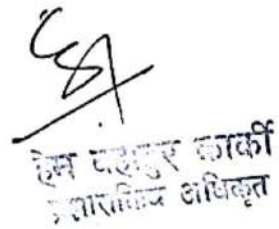 हेम बहादुर कार्की
प्रशासकिय अधिकृत